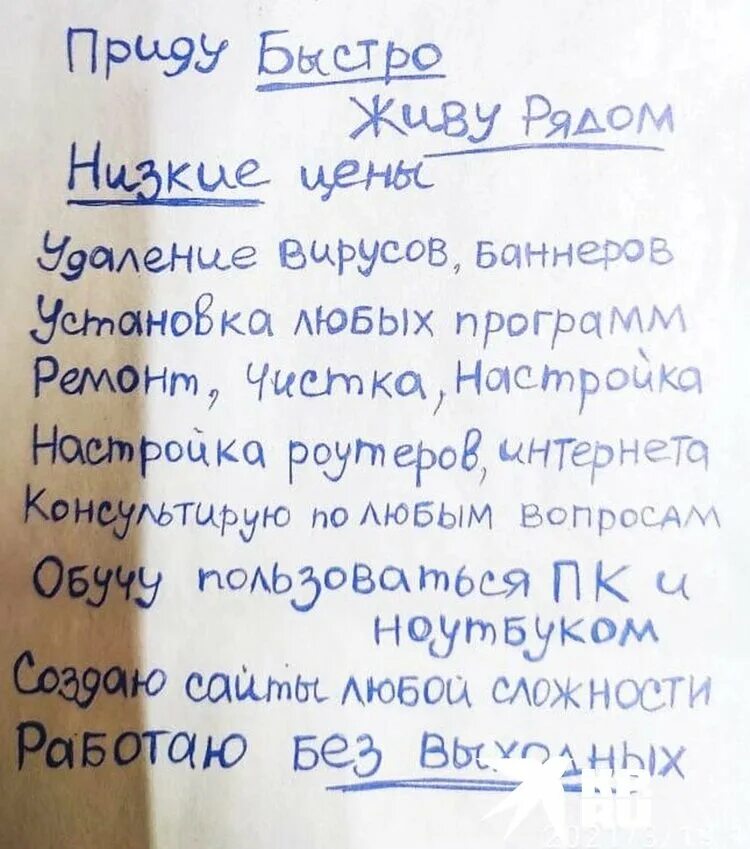 Приду Быстро
Живу Рядом
Низкие цены
Удаление вирусов, баннеров
Установка любых программ
Ремонт, Чистка, Настройка
Настройка роутеров, интернета
Консультирую по любым вопросам
Обучу пользоваться ПК и
ноутбуком
Создаю сайты любой сложности
Работаю без выходных
KP
RU